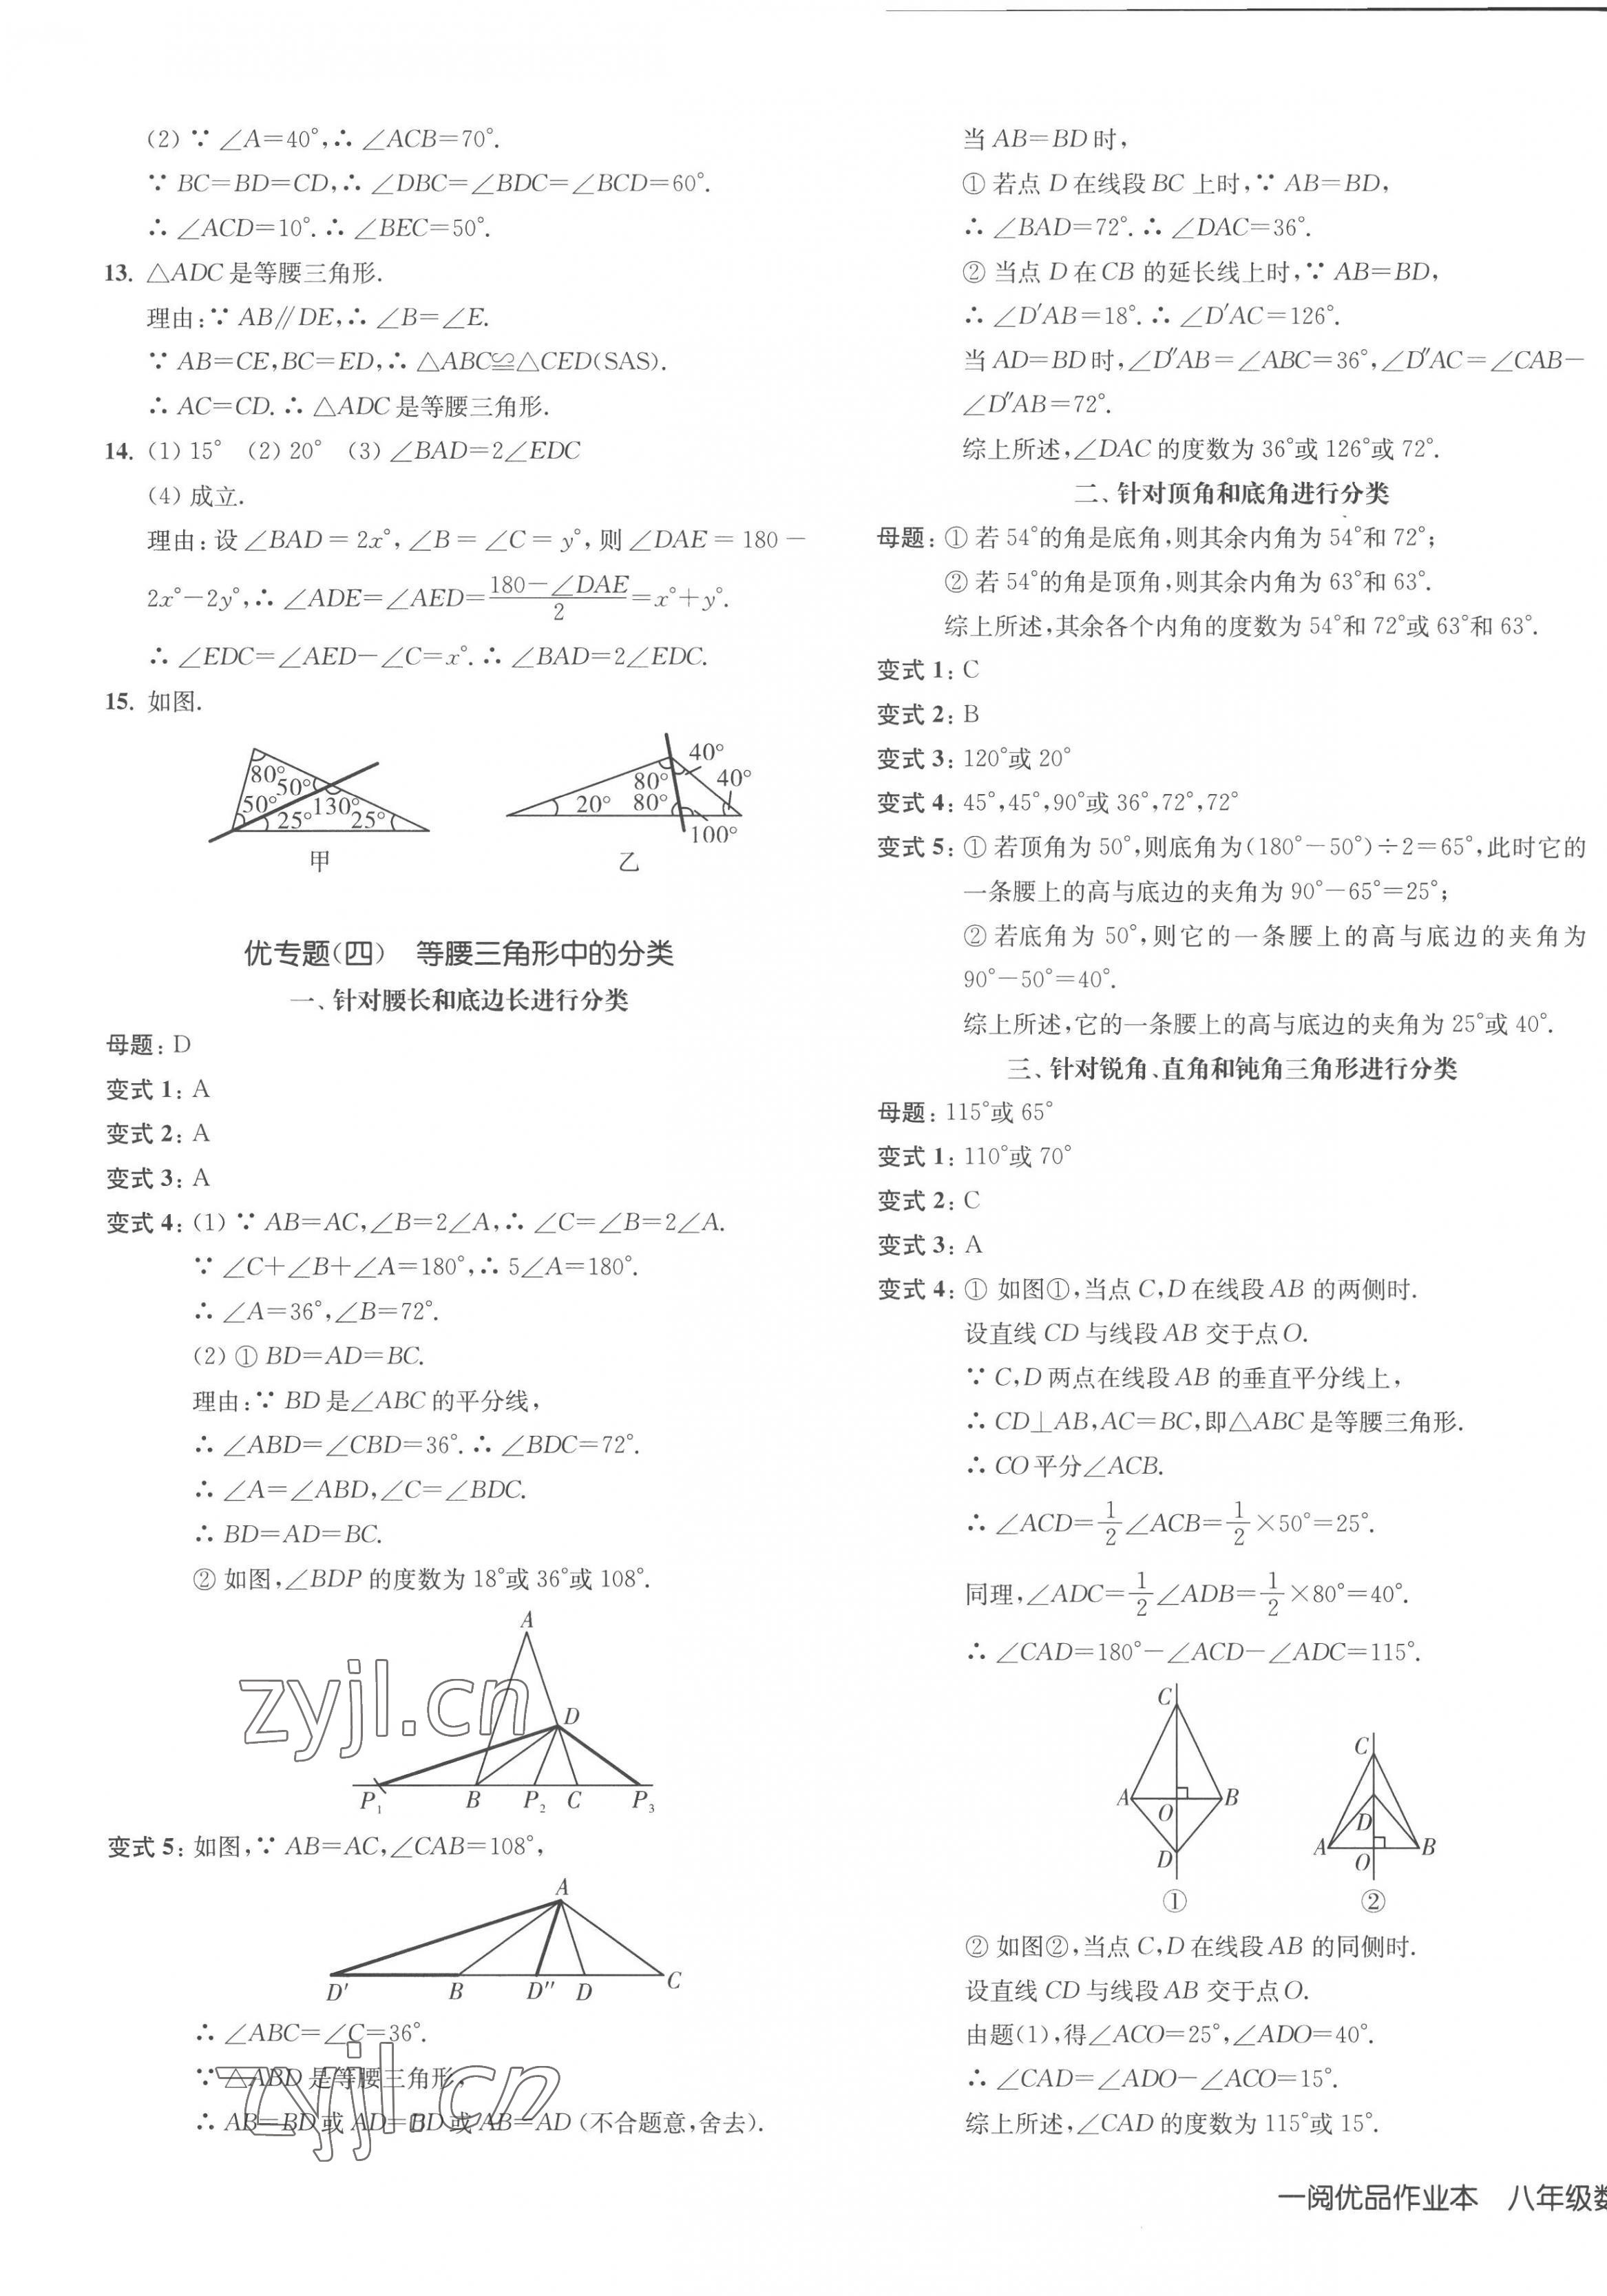 (2) ∵ ∠A=40°,∴ ∠ACB=70°.
∵ BC=BD=CD,∴ ∠DBC=∠BDC=∠BCD=60°.
∴ ∠ACD=10°.∴ ∠BEC=50°.
13. △ADC是等腰三角形.
理由:∵ AB∥DE,∴ ∠B=∠E.
∵ AB=CE,BC=ED,∴ △ABC≌△CED(SAS).
∴ AC=CD.∴ △ADC是等腰三角形.
14. (1) 15° (2) 20° (3) ∠BAD=2∠EDC
(4) 成立.
理由:设∠BAD=2x°,∠B=∠C=y°,则∠DAE=180-
2x°-2y°,∴ ∠ADE=∠AED=(180-∠DAE)/2=x°+y°.
∴ ∠EDC=∠AED-∠C=x°.∴ ∠BAD=2∠EDC.
15. 如图.
80°
50°
50°
130°
25°
25°
甲
40°
80°
40°
20°
80°
100°
乙
优专题(四) 等腰三角形中的分类
一、针对腰长和底边长进行分类
母题: D
变式1: A
变式2: A
变式3: A
变式4: (1) ∵ AB=AC,∠B=2∠A,∴ ∠C=∠B=2∠A.
∵ ∠C+∠B+∠A=180°,∴ 5∠A=180°.
∴ ∠A=36°,∠B=72°.
(2) ① BD=AD=BC.
理由:∵ BD是∠ABC的平分线,
∴ ∠ABD=∠CBD=36°.∴ ∠BDC=72°.
∴ ∠A=∠ABD,∠C=∠BDC.
∴ BD=AD=BC.
② 如图,∠BDP的度数为18°或36°或108°.
A
D
P₁ B P₂ C P₃
zyjl.cn
变式5: 如图,∵ AB=AC,∠CAB=108°,
A
D′ B D″ D C
∴ ∠ABC=∠C=36°.
∵ △ABD是等腰三角形,
∴ AB=BD或AD=BD或AB=AD(不合题意,舍去).
zyjl.cn
当AB=BD时,
① 若点D在线段BC上时,∵ AB=BD,
∴ ∠BAD=72°.∴ ∠DAC=36°.
② 当点D在CB的延长线上时,∵ AB=BD,
∴ ∠D′AB=18°.∴ ∠D′AC=126°.
当AD=BD时,∠D″AB=∠ABC=36°,∠D″AC=∠CAB-
∠D″AB=72°.
综上所述,∠DAC的度数为36°或126°或72°.
二、针对顶角和底角进行分类
母题: ① 若54°的角是底角,则其余内角为54°和72°;
② 若54°的角是顶角,则其余内角为63°和63°.
综上所述,其余各个内角的度数为54°和72°或63°和63°.
变式1: C
变式2: B
变式3: 120°或20°
变式4: 45°,45°,90°或36°,72°,72°
变式5: ① 若顶角为50°,则底角为(180°-50°)÷2=65°,此时它的
一条腰上的高与底边的夹角为90°-65°=25°;
② 若底角为50°,则它的一条腰上的高与底边的夹角为
90°-50°=40°.
综上所述,它的一条腰上的高与底边的夹角为25°或40°.
三、针对锐角、直角和钝角三角形进行分类
母题: 115°或65°
变式1: 110°或70°
变式2: C
变式3: A
变式4: ① 如图①,当点C,D在线段AB的两侧时.
设直线CD与线段AB交于点O.
∵ C,D两点在线段AB的垂直平分线上,
∴ CD⊥AB,AC=BC,即△ABC是等腰三角形.
∴ CO平分∠ACB.
∴ ∠ACD=1/2∠ACB=1/2×50°=25°.
同理,∠ADC=1/2∠ADB=1/2×80°=40°.
∴ ∠CAD=180°-∠ACD-∠ADC=115°.
C
A O B
D
①
C
D
A O B
②
② 如图②,当点C,D在线段AB的同侧时.
设直线CD与线段AB交于点O.
由题(1),得∠ACO=25°,∠ADO=40°.
∴ ∠CAD=∠ADO-∠ACO=15°.
综上所述,∠CAD的度数为115°或15°.
一阅优品作业本 八年级数